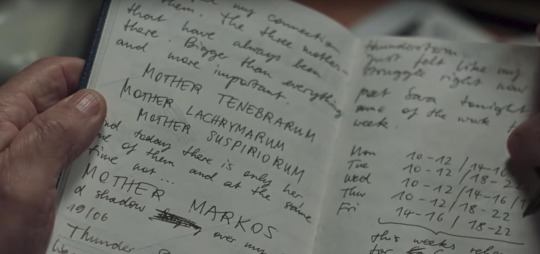 my connection
them. The three mothers
that have always been
there. Bigger than everything
and more important.
MOTHER TENEBRARUM
MOTHER LACHRYMARUM
MOTHER SUSPIRIORUM
And today there is only her.
one of them and at the same
time not...
MOTHER MARKOS
a shadow over my
19/06
Thunder
thunderstorm.
Just felt like my
struggle right now
met Sara tonight
some of the work
week.
Mon 10-12 / 14-16
Tue 10-12 / 18-22
Wed 10-12 / 14-16
Thu 10-12 / 18-22
Fri 14-16 / 18-22
this weeks
for